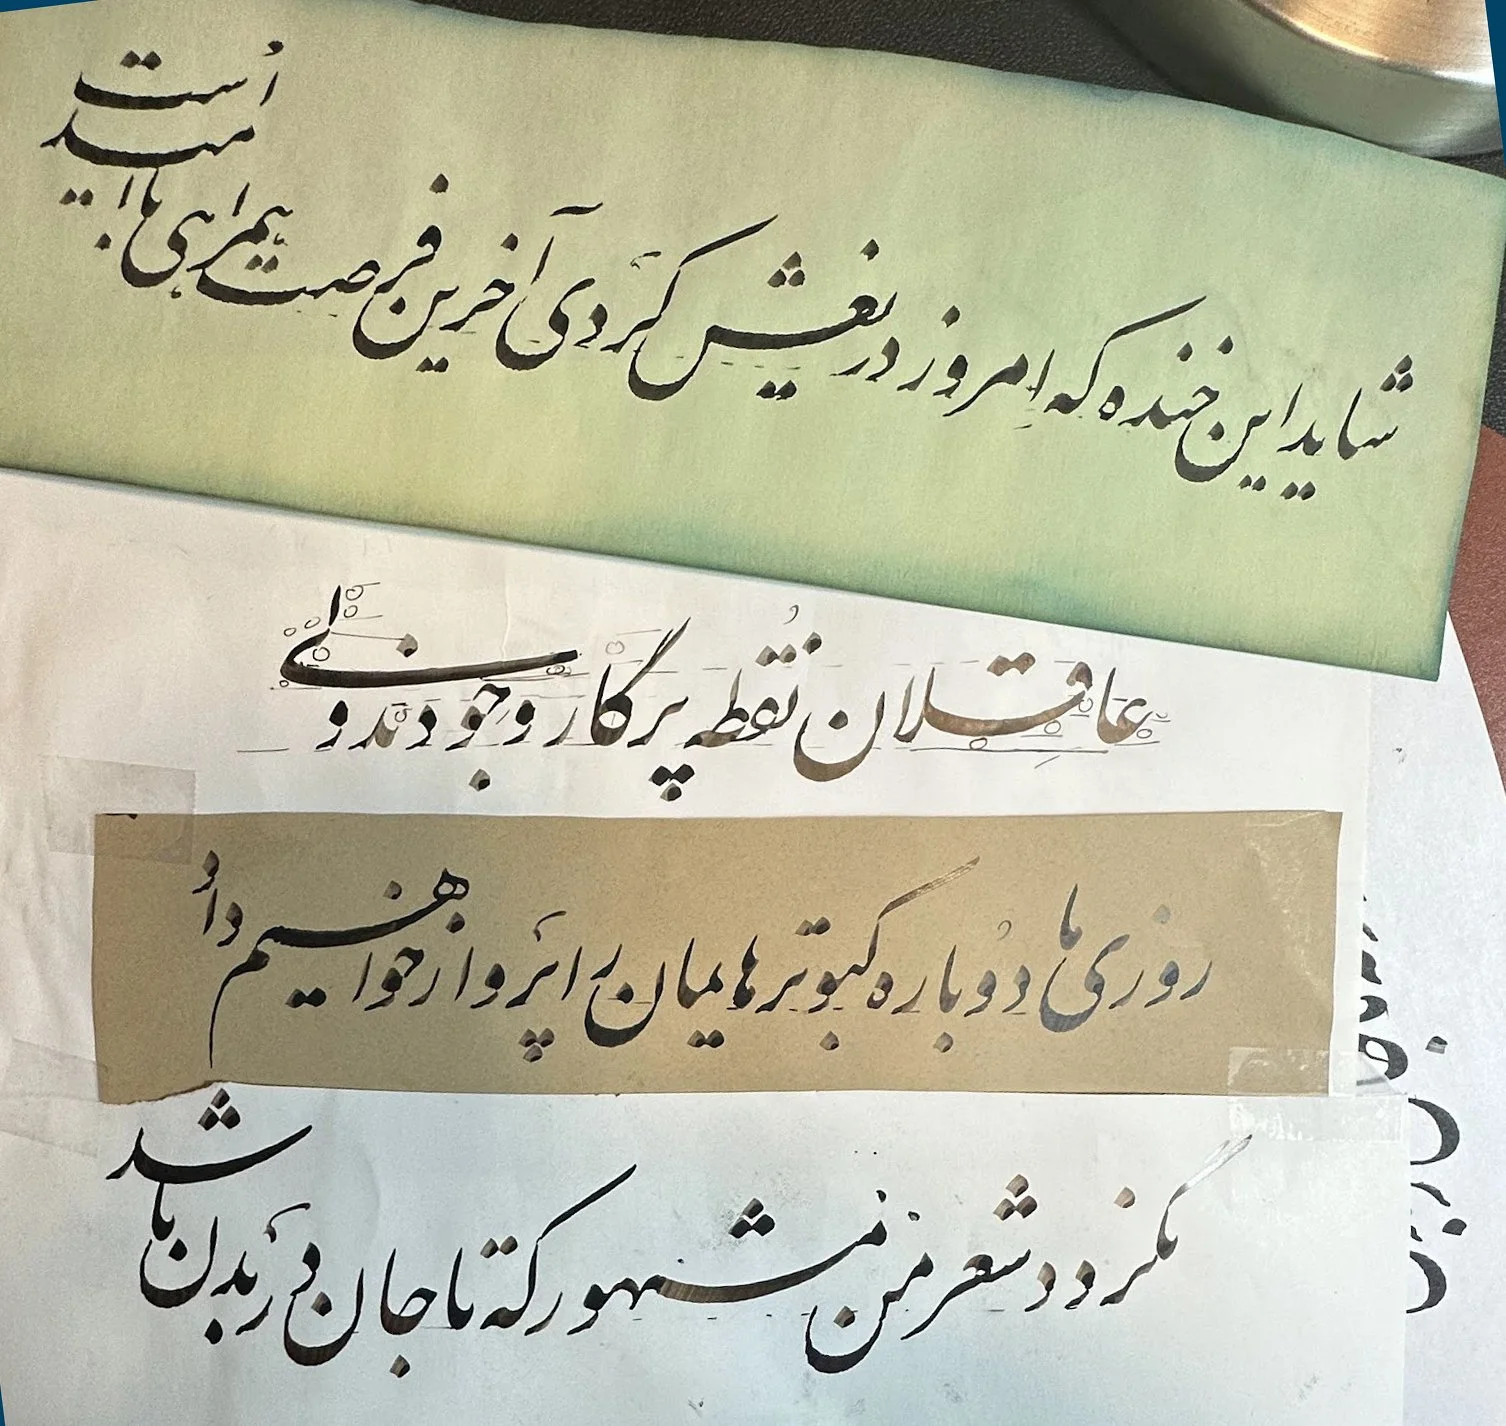 شاید این خنده که امروز دریغش کردی آخرین فرصت همراهی با امید است
عاقلان نُقطه پرگار وجودند ولی
روزی ما دُوباره کبوترهایمان را پرواز خواهیم داد
نگردد شعر من مشهور که تا جان در بدن باشد